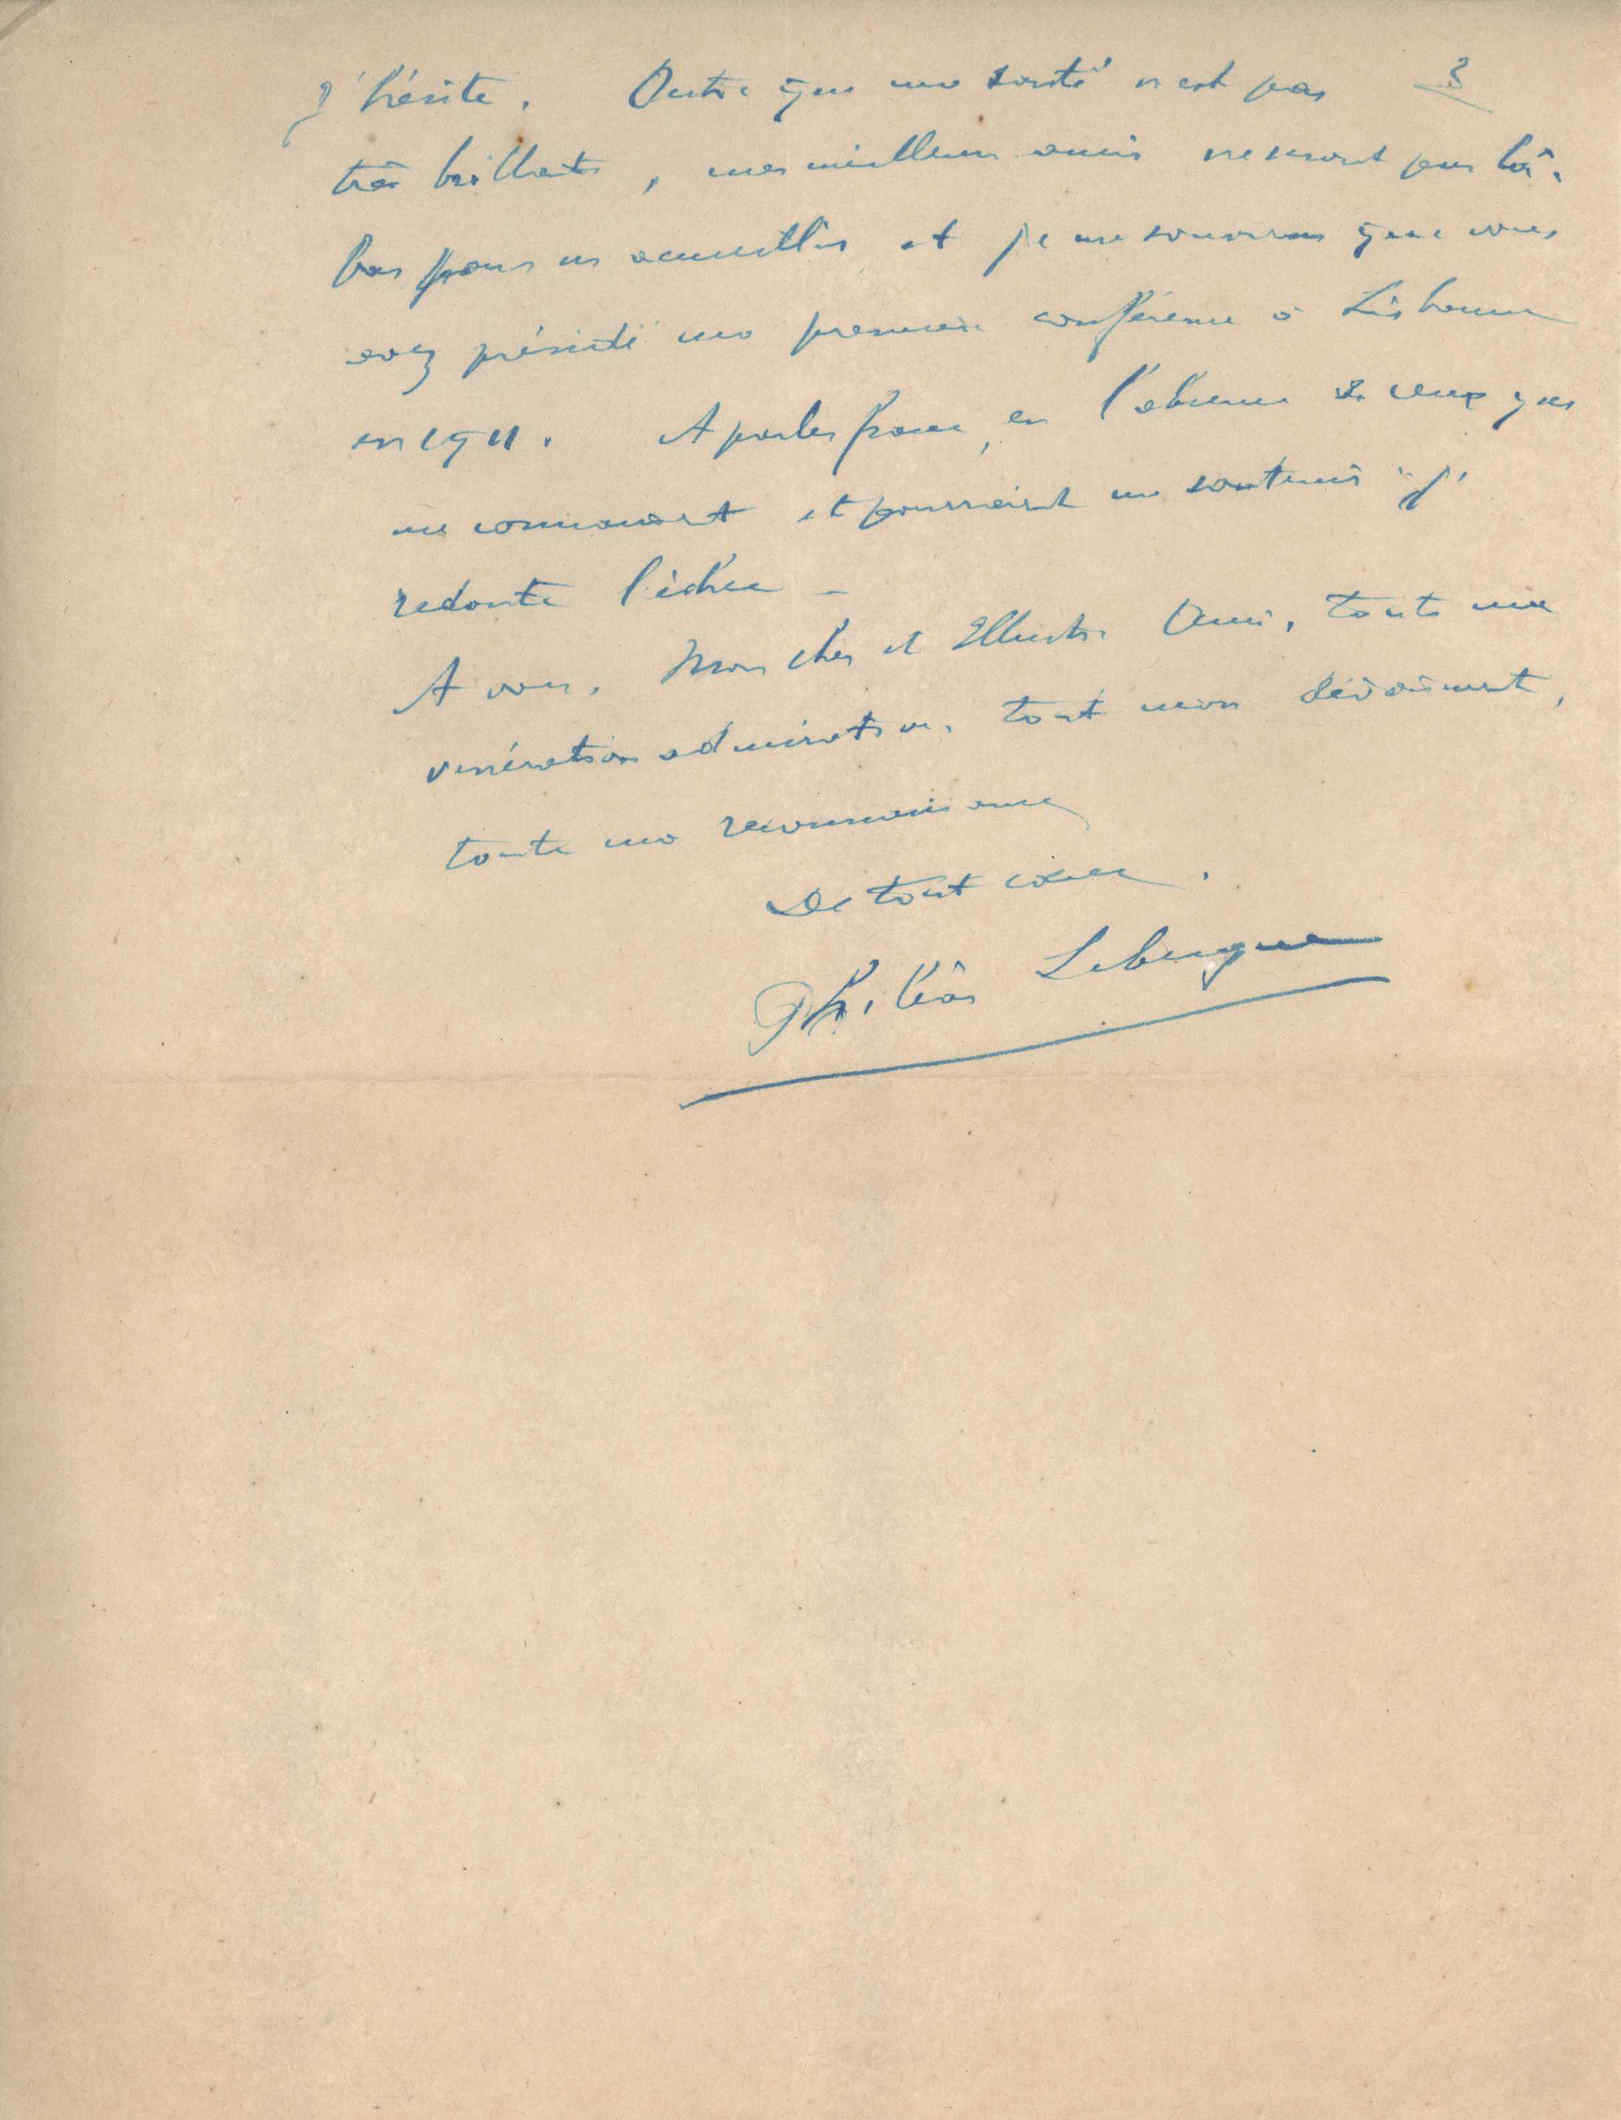 3
J'hésite. Outre que ma santé n'est pas
très brillante, mes meilleurs amis ne seront pas là-
bas pour m'accueillir et je me souviens que vous
avez présidé ma première conférence à Lisbonne
en 1911. A parler franc, en l'absence de ceux qui
me connaissent et pourraient me soutenir j'
redoute l'échec –
A vous, Mon cher et Illustre Ami, toute ma
vénération admirative, tout mon dévoûment,
toute ma reconnaissance
De tout cœur.
Philéas Lebesgue